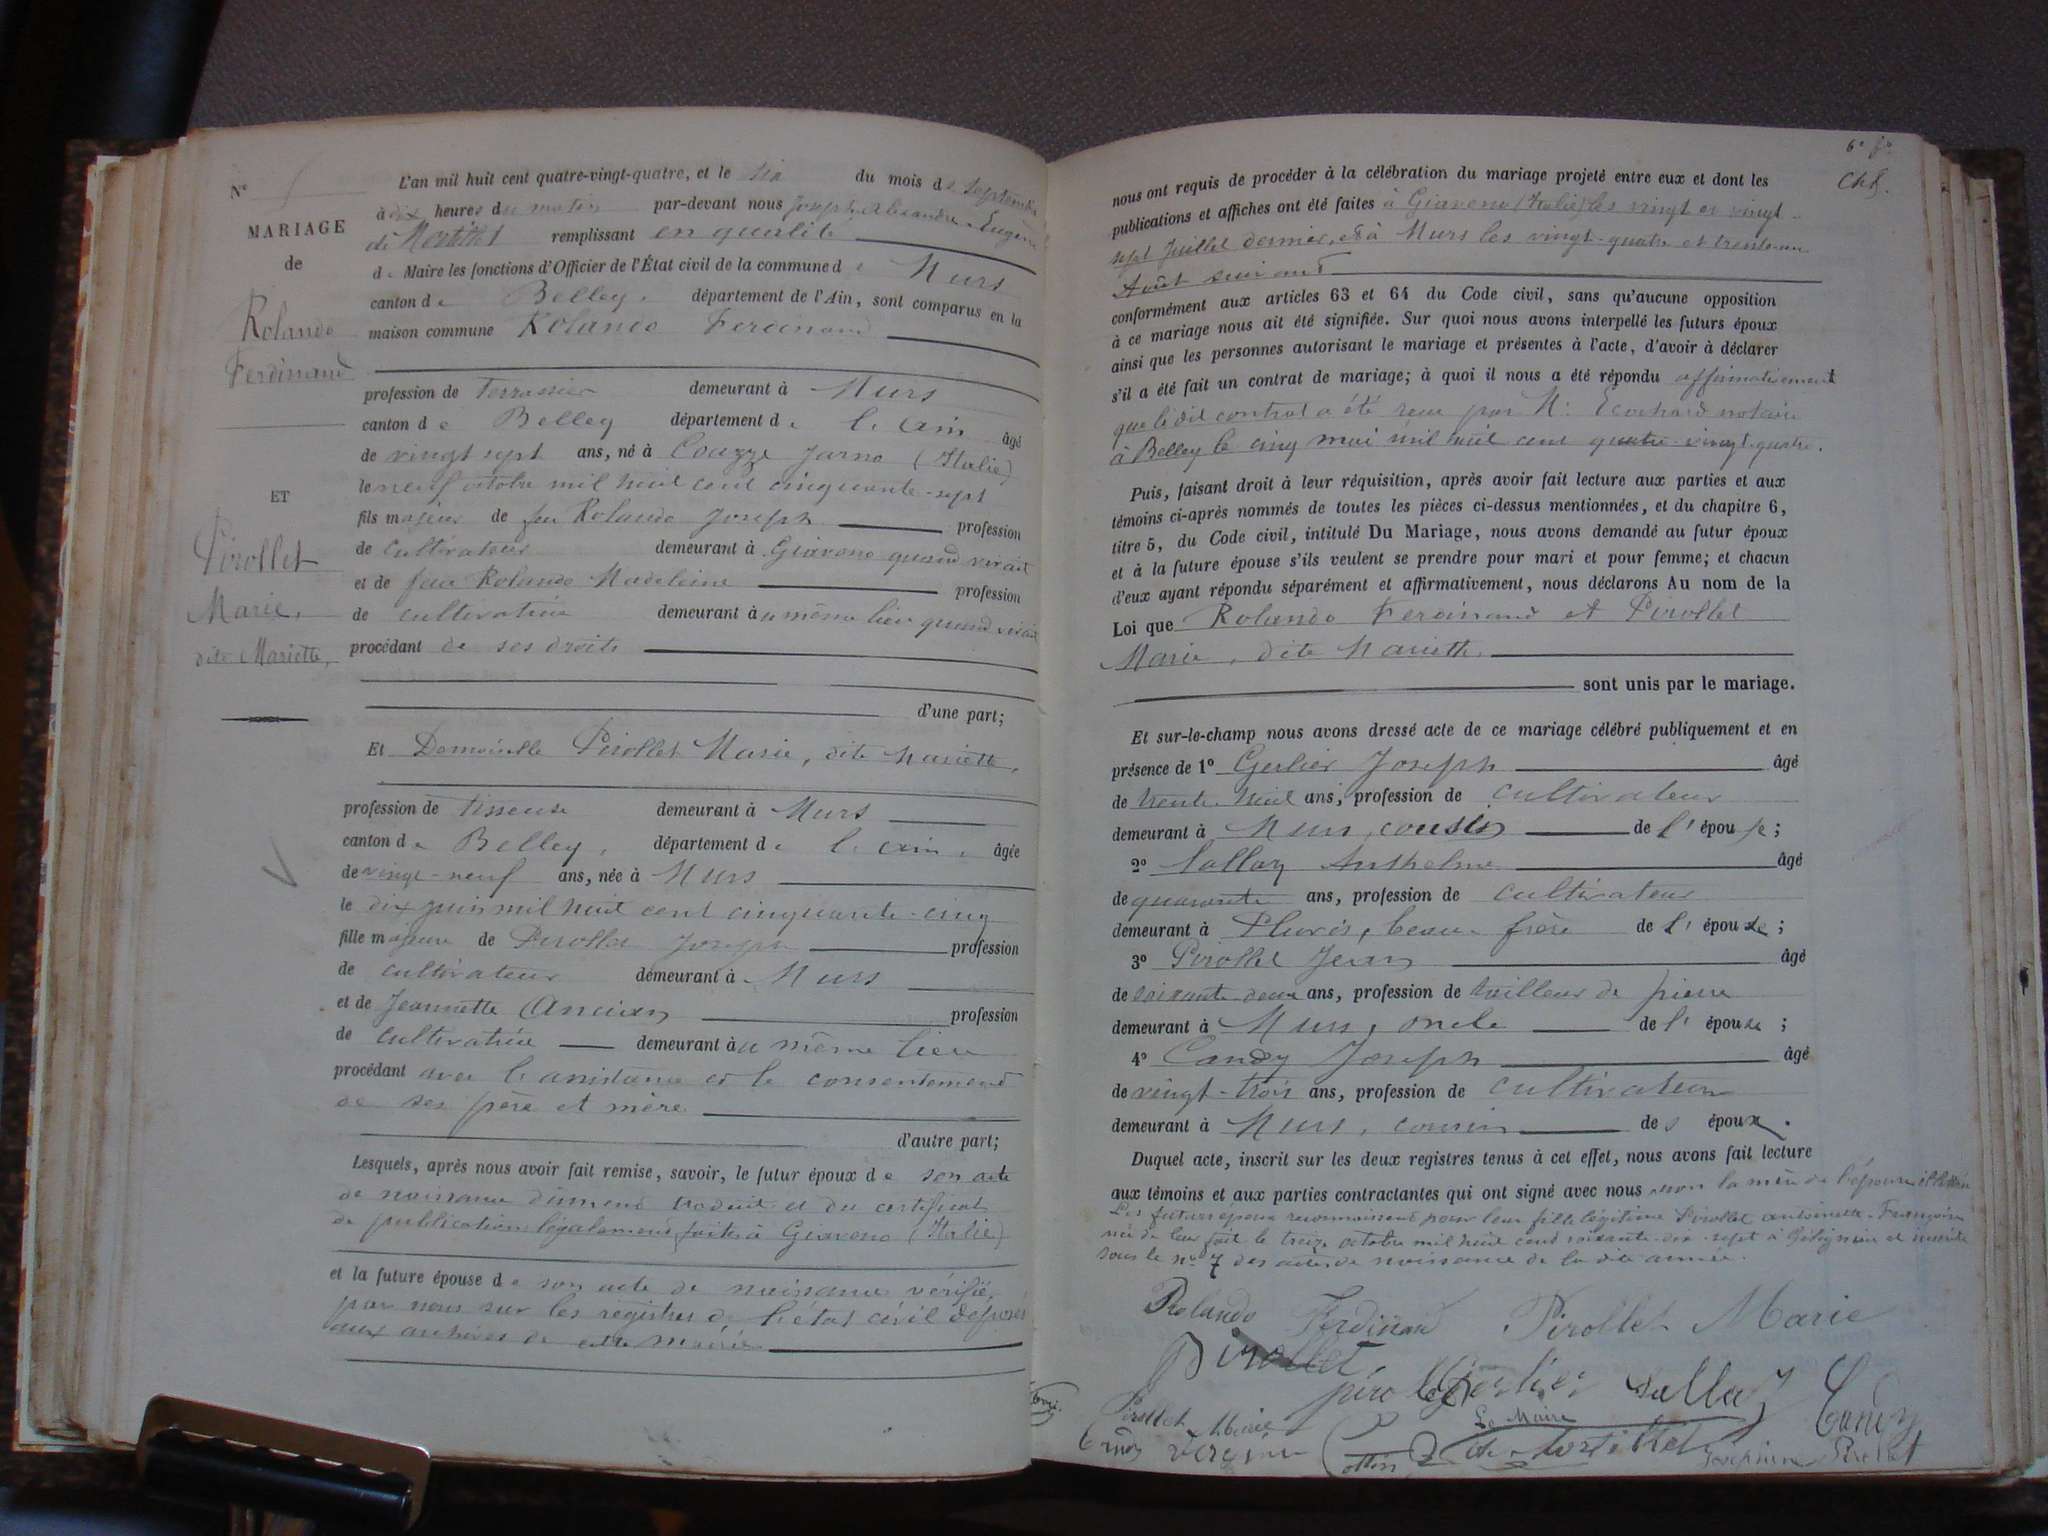 N°
MARIAGE
de
Rolando
Ferdinand
ET
Pirollet
Marie,
dite Mariette,
L'an mil huit cent quatre-vingt-quatre, et le six du mois de Septembre
à dix heures du matin par-devant nous Joseph, Alexandre-Eugène
de Mortillet remplissant en qualité
de Maire les fonctions d'Officier de l'État civil de la commune de Murs
canton de Belley, département de l'Ain, sont comparus en la
maison commune Rolando Ferdinand
profession de Terrassier demeurant à Murs
canton de Belley département de l'ain âgé
de vingt sept ans, né à Coazze (Italie)
le neuf octobre mil huit cent cinquante-sept
fils majeur de feu Rolando Joseph profession
de cultivateur demeurant à Giaveno quand vivait
et de feue Rolando Madeleine profession
de cultivatrice demeurant au même lieu quand vivait
procédant de ses droits
d'une part;
Et Demoiselle Pirollet Marie, dite Mariette,
profession de tisseuse demeurant à Murs
canton de Belley, département de l'ain, âgée
de vingt-neuf ans, née à Murs
le dix juin mil huit cent cinquante-cinq
fille majeure de Pirollet Joseph profession
de cultivateur demeurant à Murs
et de Jeannette Ancian profession
de cultivatrice demeurant au même lieu
procédant avec l'assistance et le consentement
de ses père et mère
d'autre part;
Lesquels, après nous avoir fait remise, savoir, le futur époux de son acte
de naissance dûment traduit et du certificat
de publication légalement faite à Giaveno (Italie)
et la future épouse de son acte de naissance vérifié
par nous sur les registres de l'état civil déposés
aux archives de cette mairie
6e fo
Ch f.
nous ont requis de procéder à la célébration du mariage projeté entre eux et dont les
publications et affiches ont été faites à Giaveno (Italie) les vingt et vingt-
sept Juillet dernier, et à Murs les vingt-quatre et trente-un
Août suivant
conformément aux articles 63 et 64 du Code civil, sans qu'aucune opposition
à ce mariage nous ait été signifiée. Sur quoi nous avons interpellé les futurs époux
ainsi que les personnes autorisant le mariage et présentes à l'acte, d'avoir à déclarer
s'il a été fait un contrat de mariage; à quoi il nous a été répondu affirmativement
que le dit contrat a été reçu par M: notaire
à Belley le cinq mai mil huit cent quatre-vingt-quatre.
Puis, faisant droit à leur réquisition, après avoir fait lecture aux parties et aux
témoins ci-après nommés de toutes les pièces ci-dessus mentionnées, et du chapitre 6,
titre 5, du Code civil, intitulé Du Mariage, nous avons demandé au futur époux
et à la future épouse s'ils veulent se prendre pour mari et pour femme; et chacun
d'eux ayant répondu séparément et affirmativement, nous déclarons Au nom de la
Loi que Rolando Ferdinand et Pirollet
Marie, dite Mariette,
sont unis par le mariage.
Et sur-le-champ nous avons dressé acte de ce mariage célébré publiquement et en
présence de 1° Gerlier Joseph âgé
de trente-huit ans, profession de cultivateur
demeurant à Murs, cousin de l'épouse;
2° Sallaz Anthelme âgé
de quarante ans, profession de cultivateur
demeurant à beau-frère de l'épouse;
3° Pirollet Jean âgé
de soixante deux ans, profession de tailleur de pierre
demeurant à Murs, oncle de l'épouse;
4° Candy Joseph âgé
de vingt-trois ans, profession de cultivateur
demeurant à Murs, cousin des époux.
Duquel acte, inscrit sur les deux registres tenus à cet effet, nous avons fait lecture
aux témoins et aux parties contractantes qui ont signé avec nous non la mère de l'épouse illettrée
Les futurs époux reconnaissent pour leur fille légitime Pirollet Antoinette-Françoise
née de leur fait le treize octobre mil huit cent soixante-dix-sept à et inscrite
sous le n° 7 des actes de naissance de la dite année.
Rolando Ferdinand Pirollet Marie
Pirollet
Gerlier Sallaz Candy
Pirollet Marie
Le Maire
de Mortillet
Joséphine Pirollet